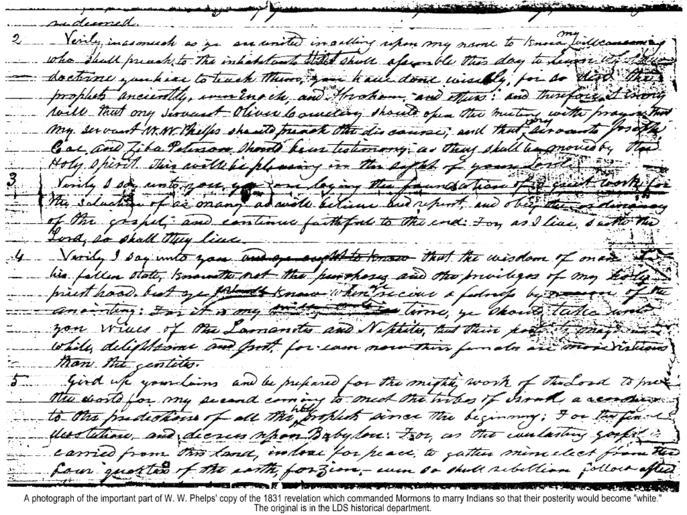 redeemed.
2 Verily, inasmuch as ye are united in calling upon my name to know my will concerning
who shall preach to the inhabitants that shall assemble this day to learn what new
doctrine you have to teach them, you have done wisely, for so did the
prophets anciently, even Enoch, and Abraham, and others: and therefore, it is my
will that my servant Oliver Cowdery should open the meeting with prayer; that
my servant W. W. Phelps should preach the discourse; and that my servants Joseph
Coe, and Ziba Peterson, should bear testimony: as they shall be moved by the
Holy Spirit. This will be pleasing in the sight of your Lord.
3 Verily I say unto you, ye are laying the foundation of a great work for
the salvation of as many as will believe and repent, and obey the ordinances
of the gospel, and continue faithful to the end: For, as I live, saith the
Lord, so shall they live.
4 Verily I say unto you that the wisdom of man in
his fallen state, knoweth not the purposes and the privileges of my holy
priesthood. but ye shall know when ye receive a fulness by reason of the
anointing: For it is my will, that in time, ye should take unto
you wives of the Lamanites and Nephites, that their posterity may become
white, delightsome and just, for even now their females are more virtuous
than the gentiles.
5 Gird up your loins and be prepared for the mighty work of the Lord to prepare
the world for my second coming to meet the tribes of Israel according
to the predictions of all the holy prophets since the beginning; For the final
desolation, and decrees upon Babylon: For, as the everlasting gospel is
carried from this land, in love for peace, to gather mine elect from the
four quarters of the earth, for Zion,—even so shall rebellion follow after
A photograph of the important part of W. W. Phelps' copy of the 1831 revelation which commanded Mormons to marry Indians so that their posterity would become "white."
The original is in the LDS historical department.